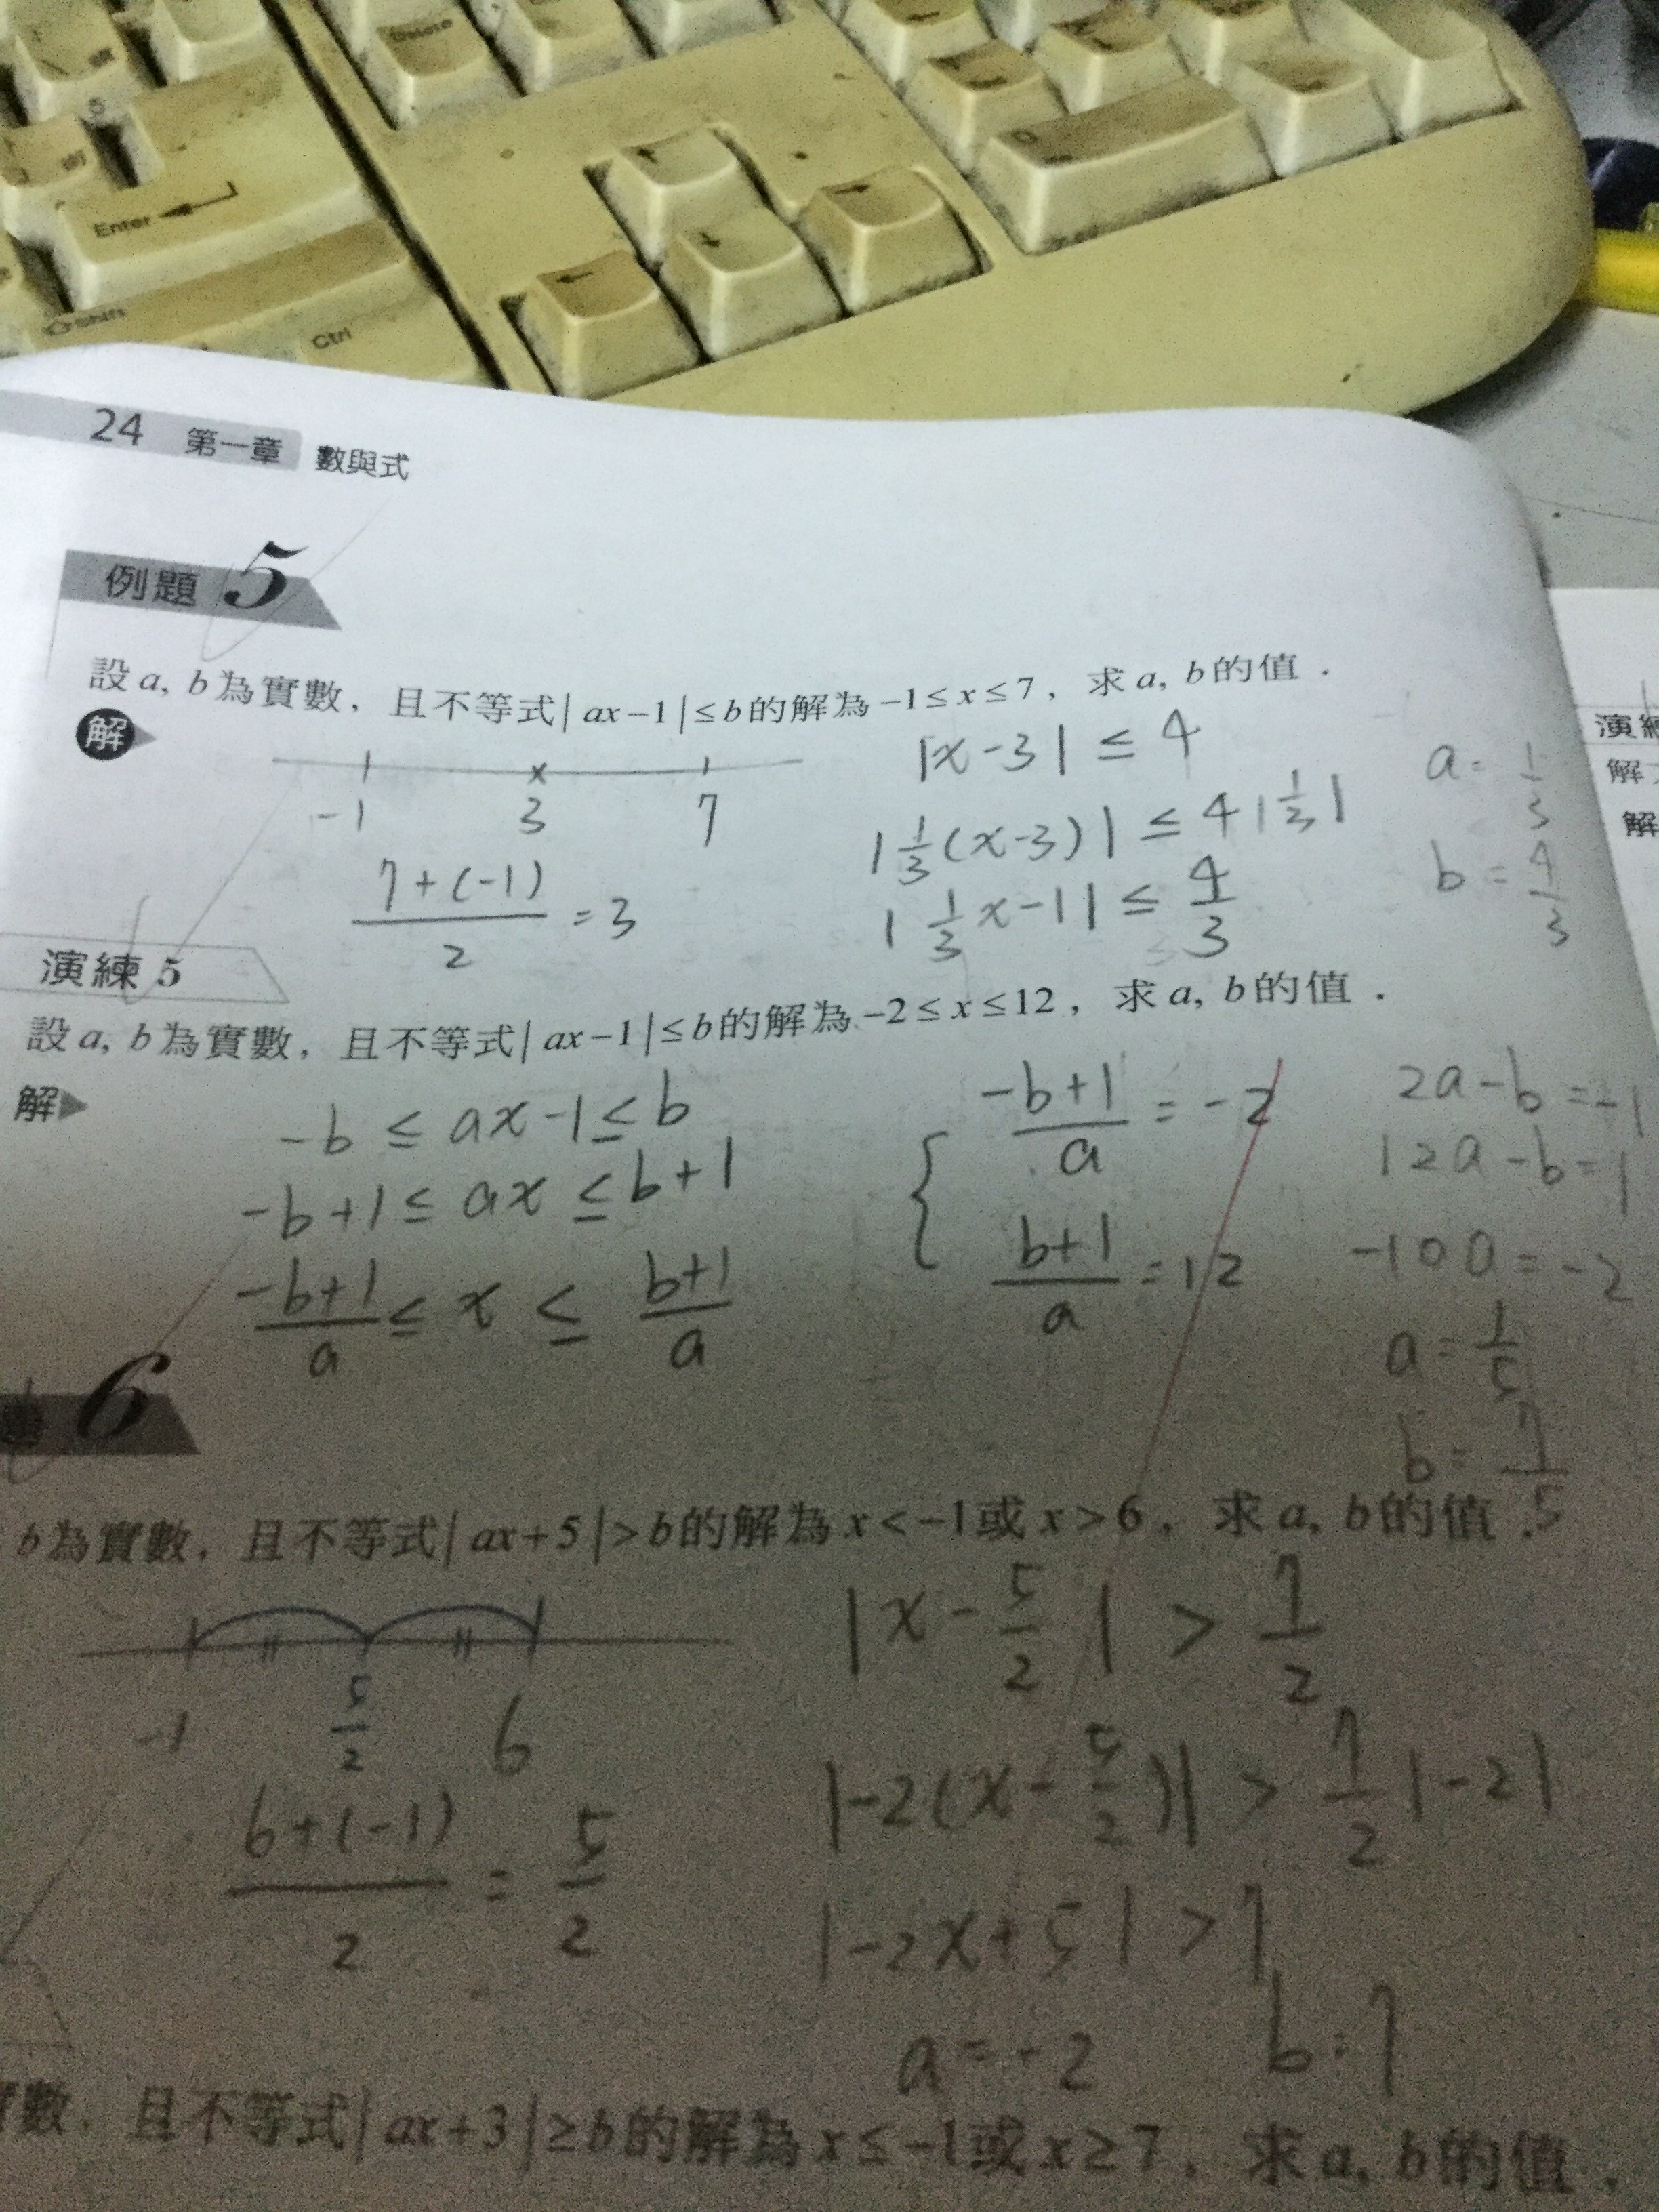 Delete
5
Enter
Shift
Ctrl
0
24 第一章 數與式
例題 5
設a, b為實數，且不等式| ax−1|≤b的解為−1≤x≤7，求a, b的值．
解
-1 3 7
7+(-1)/2 =3
|x-3| ≤ 4
|1/3(x-3)| ≤ 4|1/3|
|1/3x-1| ≤ 4/3
a=1/3
b=4/3
演練 5
設a, b為實數，且不等式| ax−1|≤b的解為−2≤x≤12，求a, b的值．
解
-b ≤ ax-1 ≤ b
-b+1 ≤ ax ≤ b+1
-b+1/a ≤ x ≤ b+1/a
{ -b+1/a = -2
b+1/a = 12
2a-b=-1
12a-b=1
-10a=-2
a=1/5
b=7/5
6
b為實數，且不等式| ax+5|>b的解為x<−1或x>6，求a, b的值．
-1 5/2 6
6+(-1)/2 = 5/2
|x-5/2| > 7/2
|-2(x-5/2)| > 7/2|-2|
|-2x+5| > 7
a=-2 b=7
實數，且不等式| ax+3|≥b的解為x≤−1或x≥7，求a, b的值．
演練
解
解